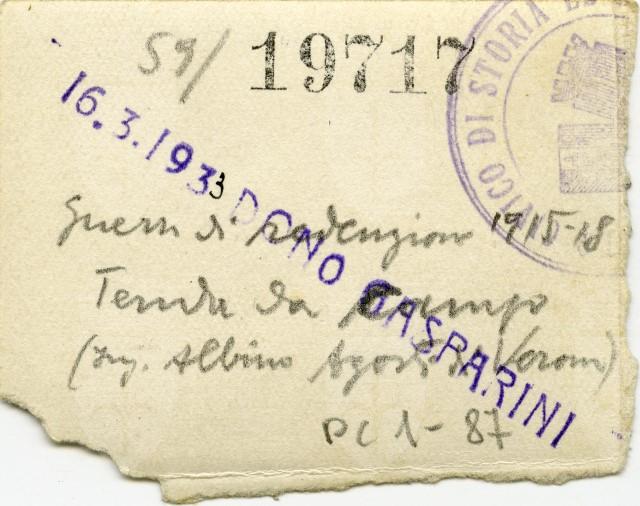 59/ 19717
VICO DI STORIA
16.3.1933 DONO GASPARINI
Guerra di redenzione 1915-18
Tenda da Campo
(Ing. Albino Agosti Verona)
PC 1-87